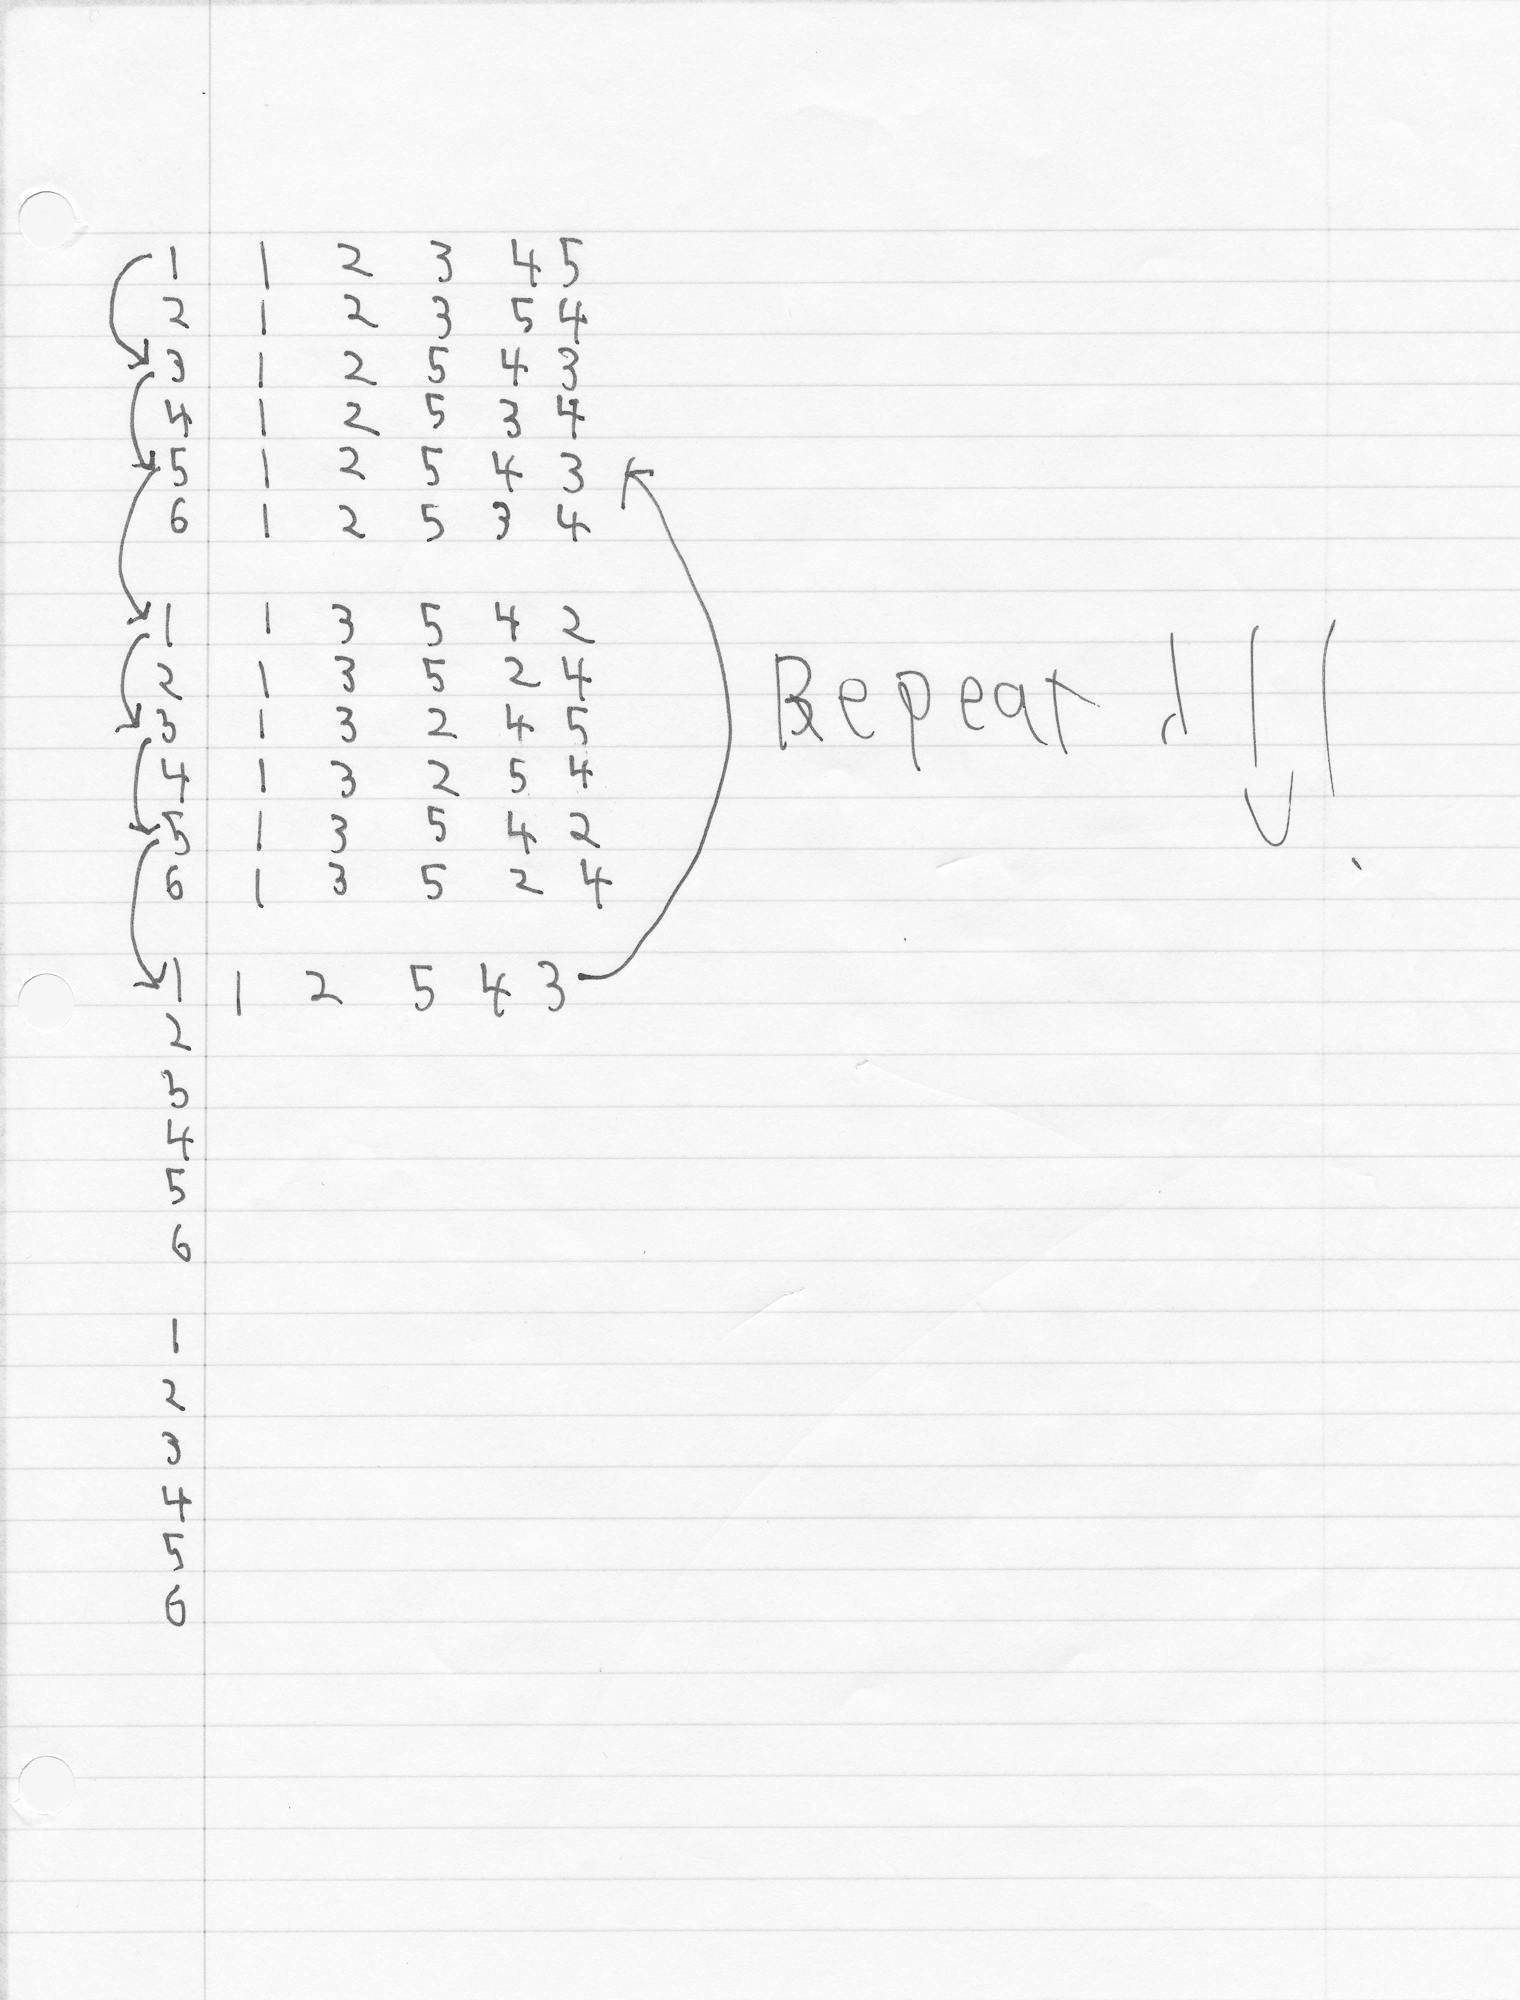 1 1 2 3 4 5
2 1 2 3 5 4
3 1 2 5 4 3
4 1 2 5 3 4
5 1 2 5 4 3
6 1 2 5 3 4
1 1 3 5 4 2
2 1 3 5 2 4
3 1 3 2 4 5
4 1 3 2 5 4
5 1 3 5 4 2
6 1 3 5 2 4
Repeat
1 1 2 5 4 3
2
3
4
5
6
1
2
3
4
5
6